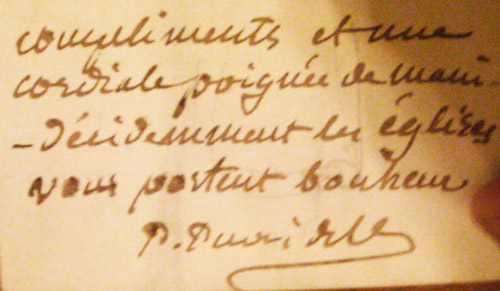 compliments et une
cordiale poignée de main.
- Décidemment les églises
vous portent bonheur
P.